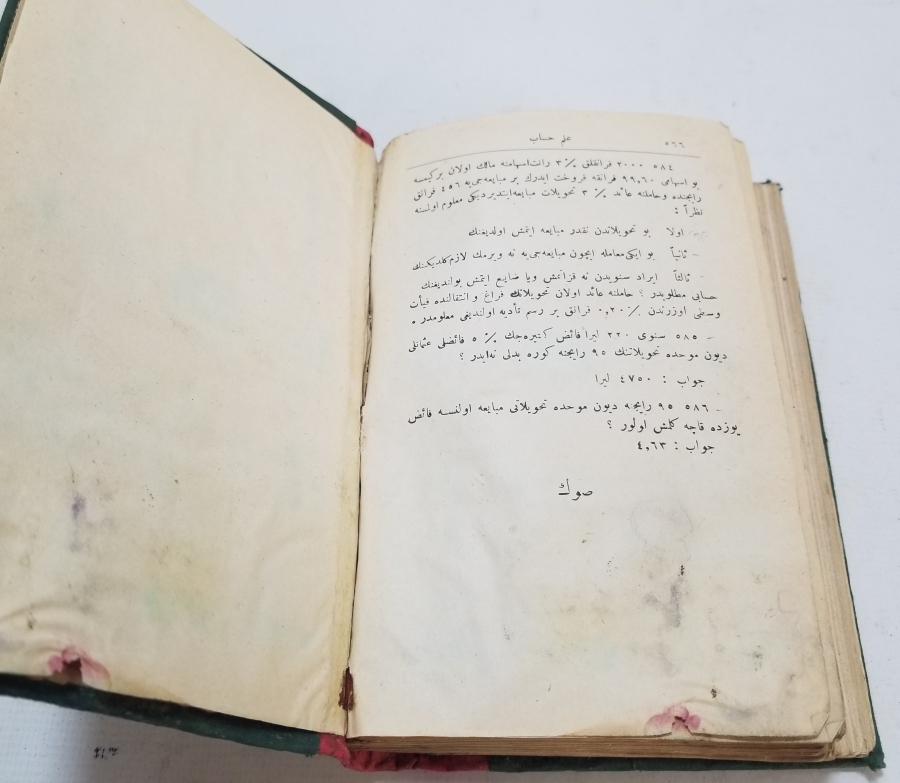 ٥٦٦ علم حساب
٥٨٤ ٢٠٠٠ فرانقلق ٪ ٣ رانت اسهامنه مالك اولان بر كيمسه
بو اسهامی ٩٩,٦٠ فرانقه فروخت ايدرك بر مبايعه‌جی‌يه ٤٥٦ فرانق
رايجنده و حاملنه عائد ٪ ٣ تحويلات مبايعه ايتديرديكی معلوم اولسنه
نظراً :
اولا بو تحويلاتدن نقدر مبايعه ايتمش اولديغنك
– ثانياً بو ايكی معامله ايچون مبايعه‌جی‌يه نه ويرمك لازم كلديكنك
– ثالثاً ايراد سنويدن نه قزانمش ويا ضايع ايتمش بولنديغنك
حسابی مطلوبدر ؟ حاملنه عائد اولان تحويلاتك فراغ و انتقالنده فيأت
وسطی اوزرندن ٪ ٠,٢٠ فرانق بر رسم تأديه اولنديغی معلومدر .
– ٥٨٥ سنوی ٢٢٠ ليرا فائض كتيره‌جك ٪ ٥ فائضلی عثمانلی
ديون موحده تحويلاتنك ٩٥ رايجنه كوره بدلی نه‌ايدر ؟
جواب : ٤٧٥٠ ليرا
– ٥٨٦ ٩٥ رايجنه ديون موحده تحويلاتی مبايعه اولنسه فائض
يوزده قاچه كلمش اولور ؟
جواب : ٤,٦٣
صوك